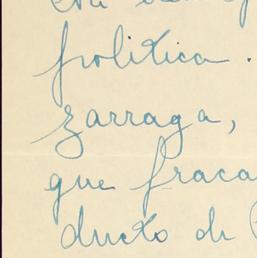 política.
zarraga,
que fraca
ducto de